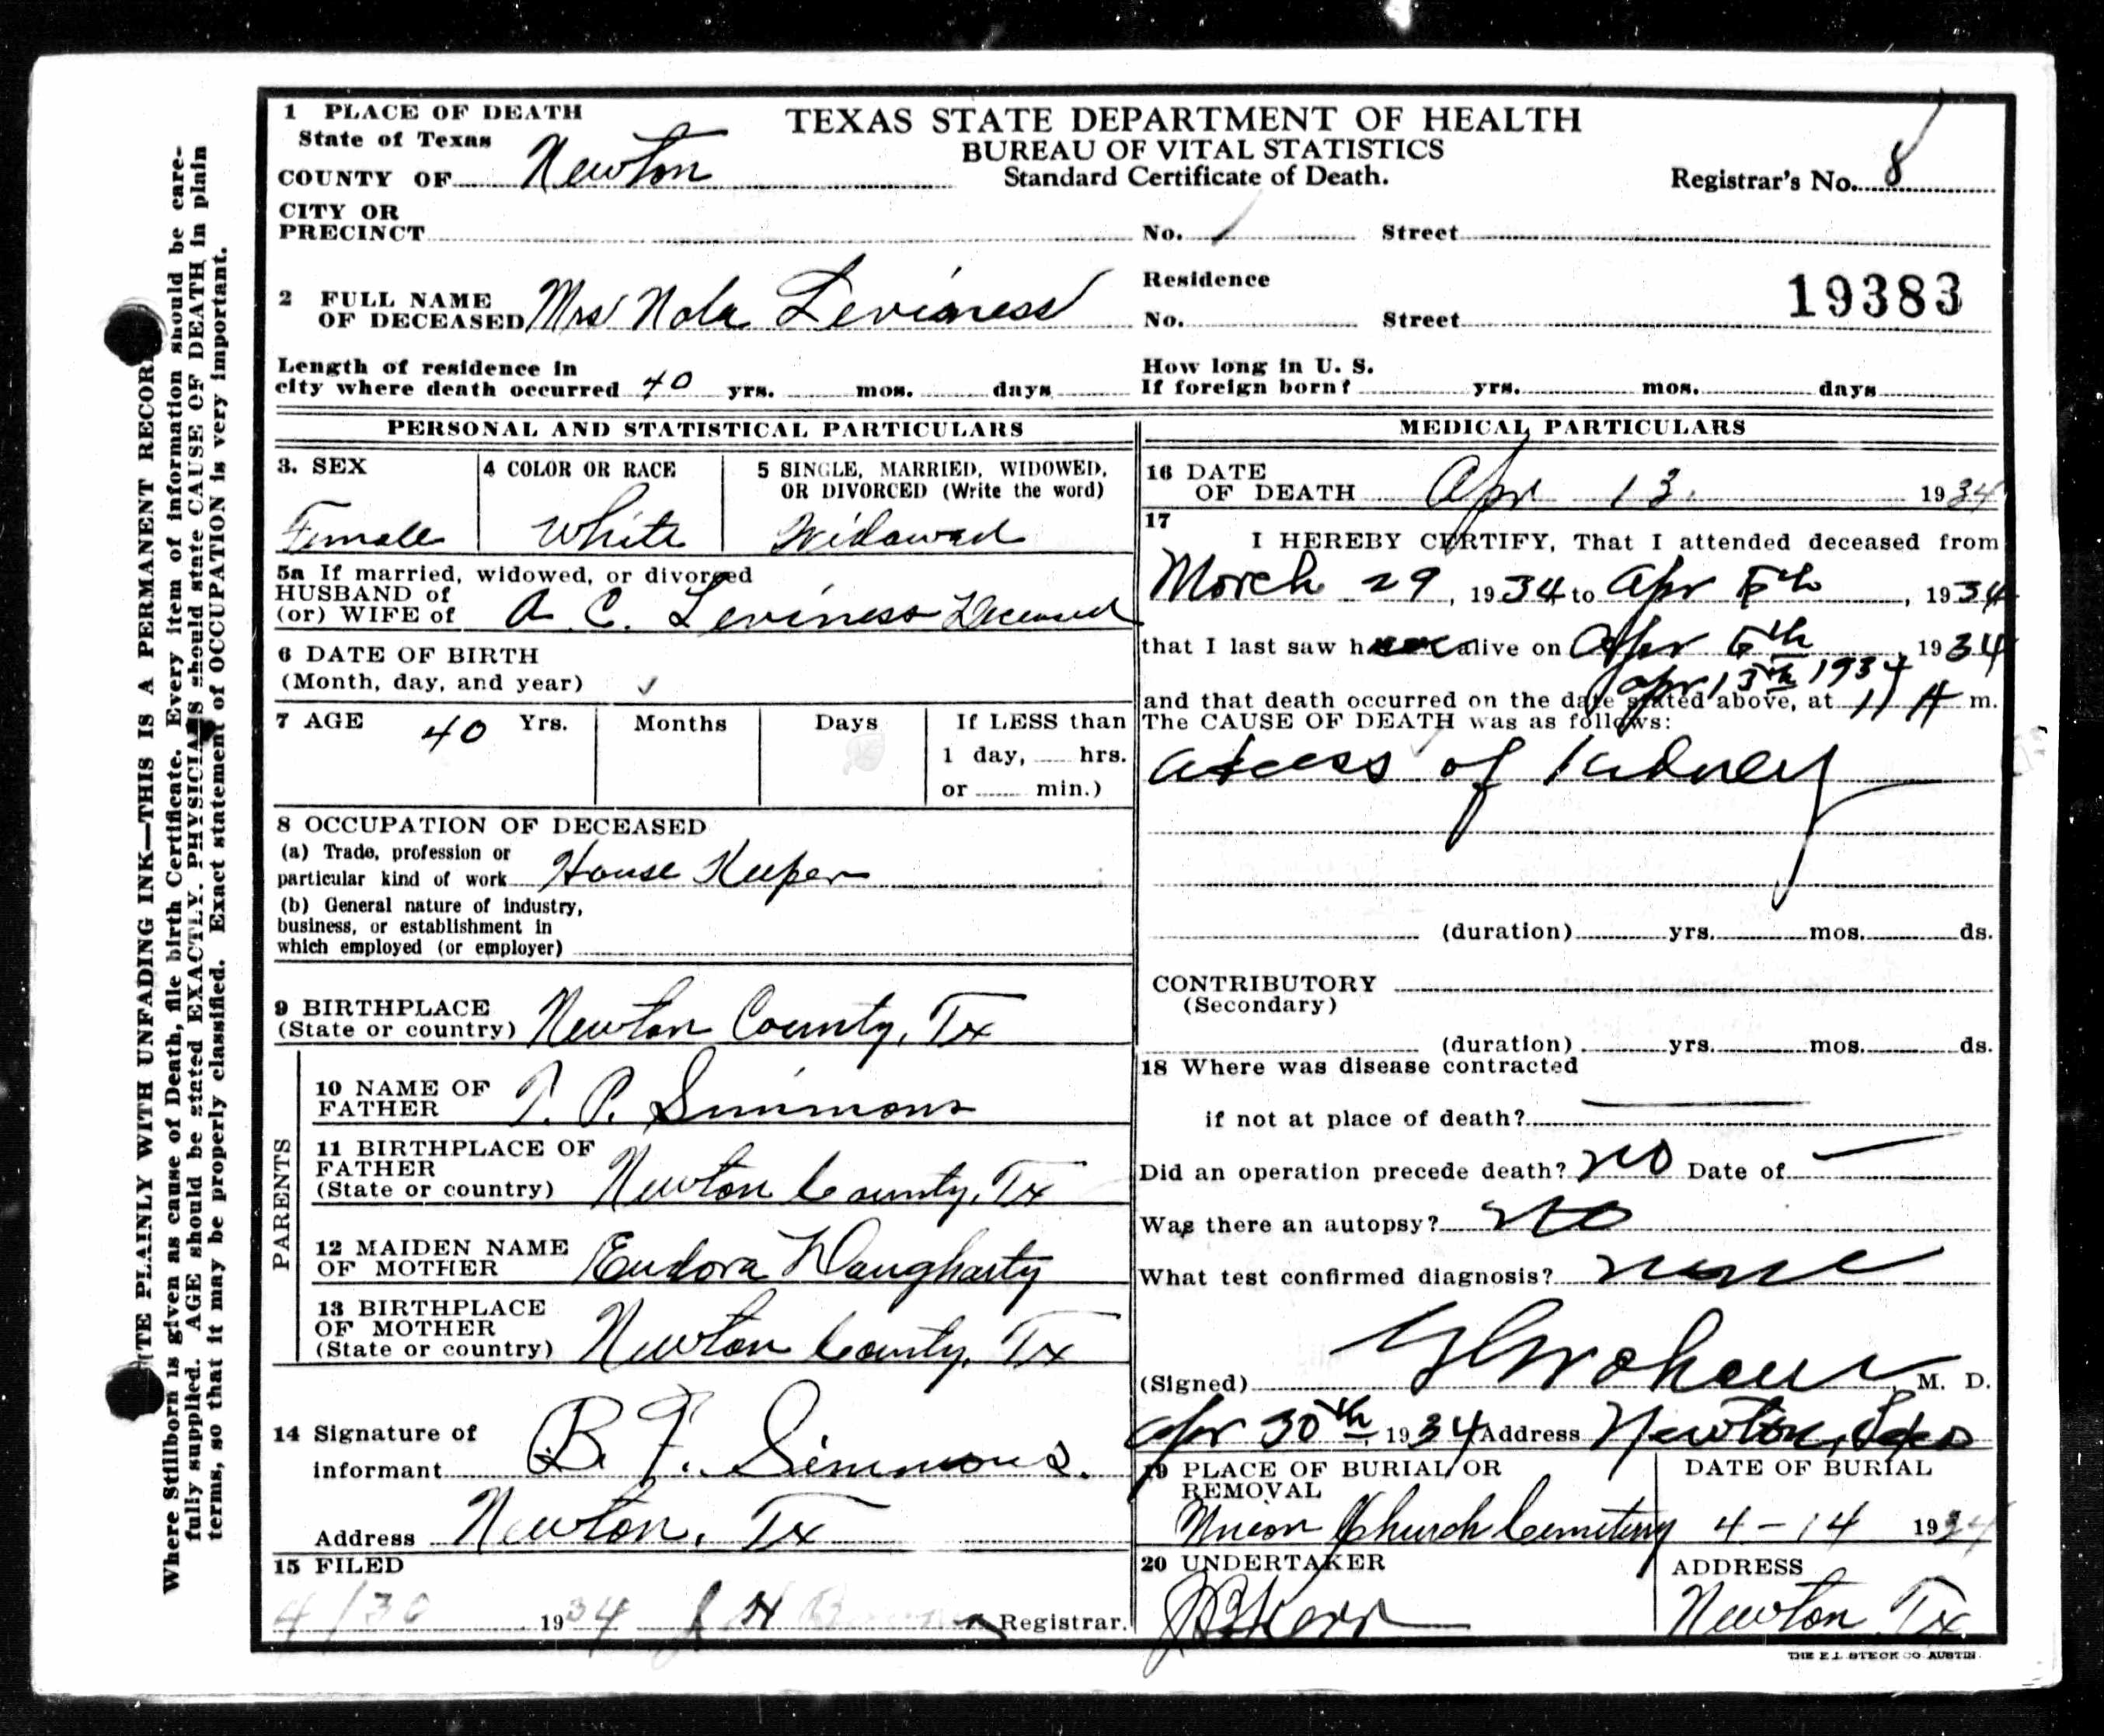 1 PLACE OF DEATH
State of Texas
COUNTY OF Newton
TEXAS STATE DEPARTMENT OF HEALTH
BUREAU OF VITAL STATISTICS
Standard Certificate of Death.
Registrar's No. 8
CITY OR
PRECINCT
No. Street
2 FULL NAME
OF DECEASED Mrs Nola Leviness
Residence
No. Street
19383
Length of residence in
city where death occurred 40 yrs. mos. days
How long in U. S.
If foreign born? yrs. mos. days
PERSONAL AND STATISTICAL PARTICULARS
3. SEX
Female
4 COLOR OR RACE
White
5 SINGLE, MARRIED, WIDOWED,
OR DIVORCED (Write the word)
Widowed
5a If married, widowed, or divorced
HUSBAND of
(or) WIFE of A C. Leviness Deceased
6 DATE OF BIRTH
(Month, day, and year)
7 AGE 40 Yrs. Months Days
If LESS than
1 day, hrs.
or min.)
8 OCCUPATION OF DECEASED
(a) Trade, profession or
particular kind of work House Keeper
(b) General nature of industry,
business, or establishment in
which employed (or employer)
9 BIRTHPLACE
(State or country) Newton County, Tx
PARENTS
10 NAME OF
FATHER T. P. Simmons
11 BIRTHPLACE OF
FATHER
(State or country) Newton County, Tx
12 MAIDEN NAME
OF MOTHER Eudora Daugharty
13 BIRTHPLACE
OF MOTHER
(State or country) Newton County, Tx
14 Signature of
informant B. F. Simmons.
Address Newton, Tx
15 FILED
4/30 1934 Registrar.
MEDICAL PARTICULARS
16 DATE
OF DEATH Apr 13. 1934
17
I HEREBY CERTIFY, That I attended deceased from
March 29, 1934 to Apr 6th, 1934
that I last saw her alive on Apr 6th 1934
Apr 13th 1934
and that death occurred on the date stated above, at 11 A m.
The CAUSE OF DEATH was as follows:
abcess of kidney
(duration) yrs. mos. ds.
CONTRIBUTORY
(Secondary)
(duration) yrs. mos. ds.
18 Where was disease contracted
if not at place of death?
Did an operation precede death? no Date of
Was there an autopsy? no
What test confirmed diagnosis? none
(Signed) M. D.
Apr 30th, 1934 Address Newton, Texas
19 PLACE OF BURIAL OR
REMOVAL
Union Church Cemetery
DATE OF BURIAL
4-14 1934
20 UNDERTAKER
ADDRESS
Newton Tx.
THE E.L. STECK CO AUSTIN
ITE PLAINLY WITH UNFADING INK—THIS IS A PERMANENT RECORD
Where Stillborn is given as cause of Death, file birth Certificate. Every item of information should be care-
fully supplied. AGE should be stated EXACTLY. PHYSICIANS should state CAUSE OF DEATH in plain
terms, so that it may be properly classified. Exact statement of OCCUPATION is very important.